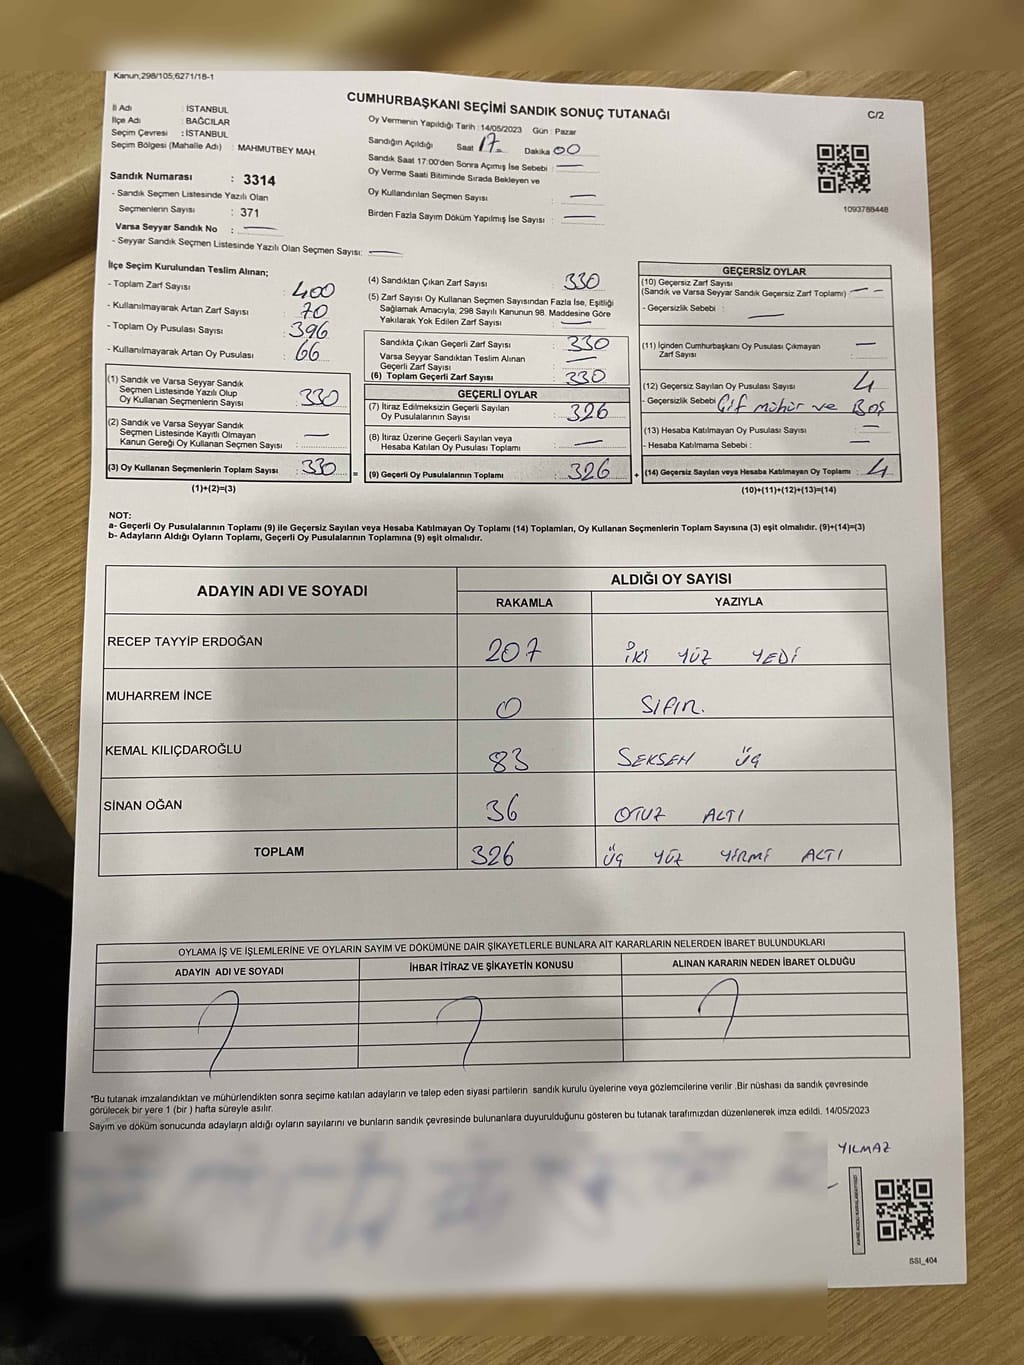 Kanun;298/105;6271/18-1
CUMHURBAŞKANI SEÇİMİ SANDIK SONUÇ TUTANAĞI
C/2
İl Adı : İSTANBUL
İlçe Adı : BAĞCILAR
Seçim Çevresi : İSTANBUL
Seçim Bölgesi (Mahalle Adı) : MAHMUTBEY MAH.
Sandık Numarası : 3314
- Sandık Seçmen Listesinde Yazılı Olan
Seçmenlerin Sayısı : 371
Varsa Seyyar Sandık No :
- Seyyar Sandık Seçmen Listesinde Yazılı Olan Seçmen Sayısı:
Oy Vermenin Yapıldığı Tarih : 14/05/2023 Gün : Pazar
Sandığın Açıldığı Saat 17 Dakika 00
Sandık Saat 17:00'den Sonra Açılmış İse Sebebi :
Oy Verme Saati Bitiminde Sırada Bekleyen ve
Oy Kullandırılan Seçmen Sayısı :
Birden Fazla Sayım Döküm Yapılmış İse Sayısı :
1093788448
İlçe Seçim Kurulundan Teslim Alınan;
- Toplam Zarf Sayısı : 400
- Kullanılmayarak Artan Zarf Sayısı : 70
- Toplam Oy Pusulası Sayısı : 396
- Kullanılmayarak Artan Oy Pusulası : 66
(1) Sandık ve Varsa Seyyar Sandık
Seçmen Listesinde Yazılı Olup
Oy Kullanan Seçmenlerin Sayısı : 330
(2) Sandık ve Varsa Seyyar Sandık
Seçmen Listesinde Kayıtlı Olmayan
Kanun Gereği Oy Kullanan Seçmen Sayısı :
(3) Oy Kullanan Seçmenlerin Toplam Sayısı : 330
(1)+(2)=(3)
(4) Sandıktan Çıkan Zarf Sayısı : 330
(5) Zarf Sayısı Oy Kullanan Seçmen Sayısından Fazla İse, Eşitliği
Sağlamak Amacıyla, 298 Sayılı Kanunun 98. Maddesine Göre
Yakılarak Yok Edilen Zarf Sayısı :
Sandıkta Çıkan Geçerli Zarf Sayısı : 330
Varsa Seyyar Sandıktan Teslim Alınan
Geçerli Zarf Sayısı :
(6) Toplam Geçerli Zarf Sayısı : 330
GEÇERLİ OYLAR
(7) İtiraz Edilmeksizin Geçerli Sayılan
Oy Pusulalarının Sayısı : 326
(8) İtiraz Üzerine Geçerli Sayılan veya
Hesaba Katılan Oy Pusulası Toplamı :
= (9) Geçerli Oy Pusulalarının Toplamı : 326
GEÇERSİZ OYLAR
(10) Geçersiz Zarf Sayısı
(Sandık ve Varsa Seyyar Sandık Geçersiz Zarf Toplamı) :
- Geçersizlik Sebebi :
(11) İçinden Cumhurbaşkanı Oy Pusulası Çıkmayan
Zarf Sayısı :
(12) Geçersiz Sayılan Oy Pusulası Sayısı : 4
- Geçersizlik Sebebi : Çif mühür ve Boş
(13) Hesaba Katılmayan Oy Pusulası Sayısı :
- Hesaba Katılmama Sebebi :
+ (14) Geçersiz Sayılan veya Hesaba Katılmayan Oy Toplamı : 4
(10)+(11)+(12)+(13)=(14)
NOT:
a- Geçerli Oy Pusulalarının Toplamı (9) ile Geçersiz Sayılan veya Hesaba Katılmayan Oy Toplamı (14) Toplamları, Oy Kullanan Seçmenlerin Toplam Sayısına (3) eşit olmalıdır. (9)+(14)=(3)
b- Adayların Aldığı Oyların Toplamı, Geçerli Oy Pusulalarının Toplamına (9) eşit olmalıdır.
ADAYIN ADI VE SOYADI
ALDIĞI OY SAYISI
RAKAMLA YAZIYLA
RECEP TAYYİP ERDOĞAN 207 İKİ YÜZ YEDİ
MUHARREM İNCE 0 SIFIR.
KEMAL KILIÇDAROĞLU 83 SEKSEN ÜÇ
SİNAN OĞAN 36 OTUZ ALTI
TOPLAM 326 ÜÇ YÜZ YİRMİ ALTI
OYLAMA İŞ VE İŞLEMLERİNE VE OYLARIN SAYIM VE DÖKÜMÜNE DAİR ŞİKAYETLERLE BUNLARA AİT KARARLARIN NELERDEN İBARET BULUNDUKLARI
ADAYIN ADI VE SOYADI İHBAR İTİRAZ VE ŞİKAYETİN KONUSU ALINAN KARARIN NEDEN İBARET OLDUĞU
*Bu tutanak imzalandıktan ve mühürlendikten sonra seçime katılan adayların ve talep eden siyasi partilerin sandık kurulu üyelerine veya gözlemcilerine verilir .Bir nüshası da sandık çevresinde
görülecek bir yere 1 (bir ) hafta süreyle asılır.
Sayım ve döküm sonucunda adayların aldığı oyların sayılarını ve bunların sandık çevresinde bulunanlara duyurulduğunu gösteren bu tutanak tarafımızdan düzenlenerek imza edildi. 14/05/2023
YILMAZ
SSI_404